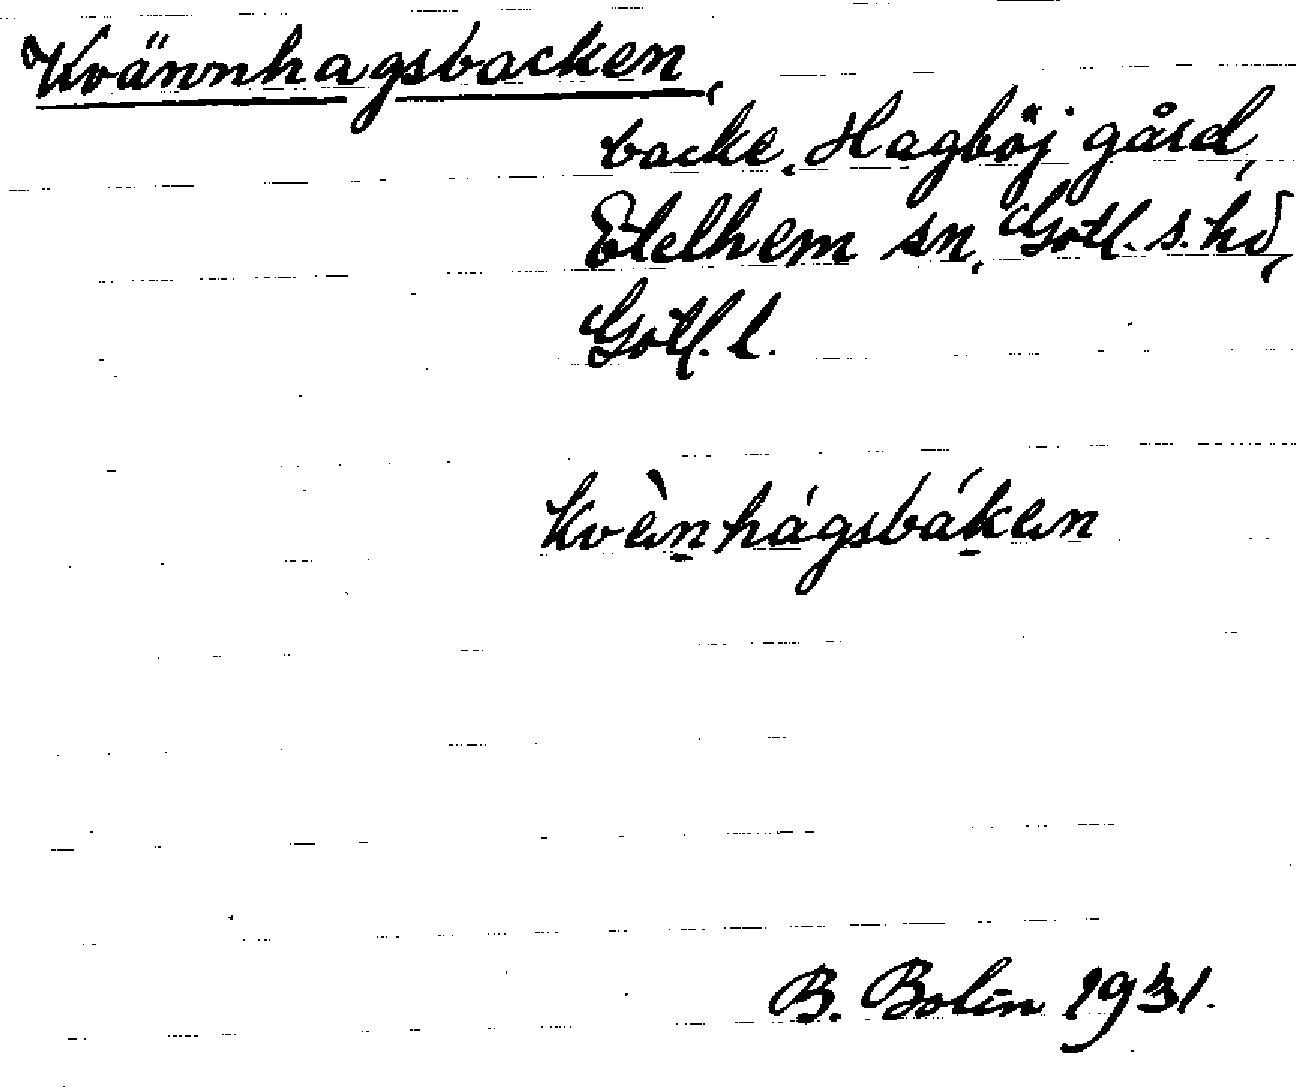 Kvännhagsbacken,
backe, Hagböj gård,
Etelhem sn, Gotl. s. hd,
Gotl. l.
Kvènhágsbáken
B. Bolin 1931.